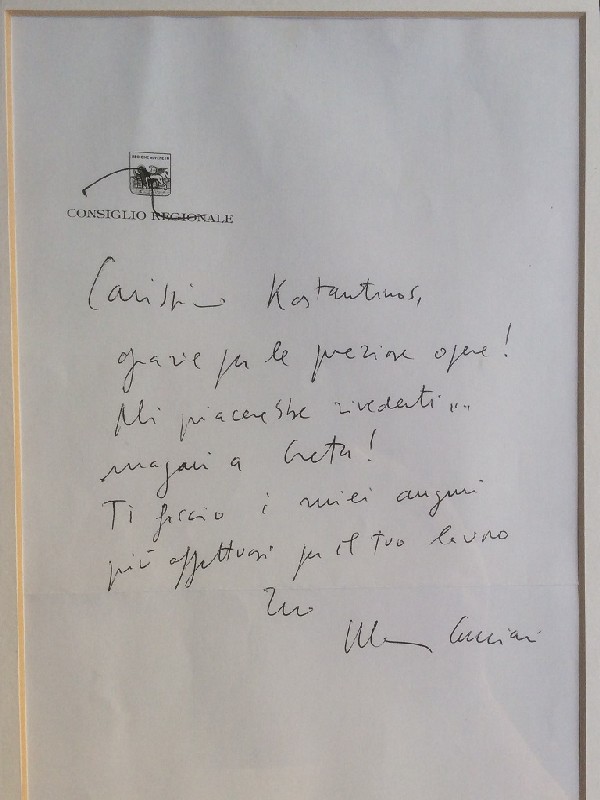 CONSIGLIO REGIONALE
Carissimo Kostantinos,
grazie per le preziose opere!
Mi piacerebbe rivederti...
magari a Creta!
Ti faccio i miei auguri
più affettuosi per il tuo lavoro
Tuo
Cacciari